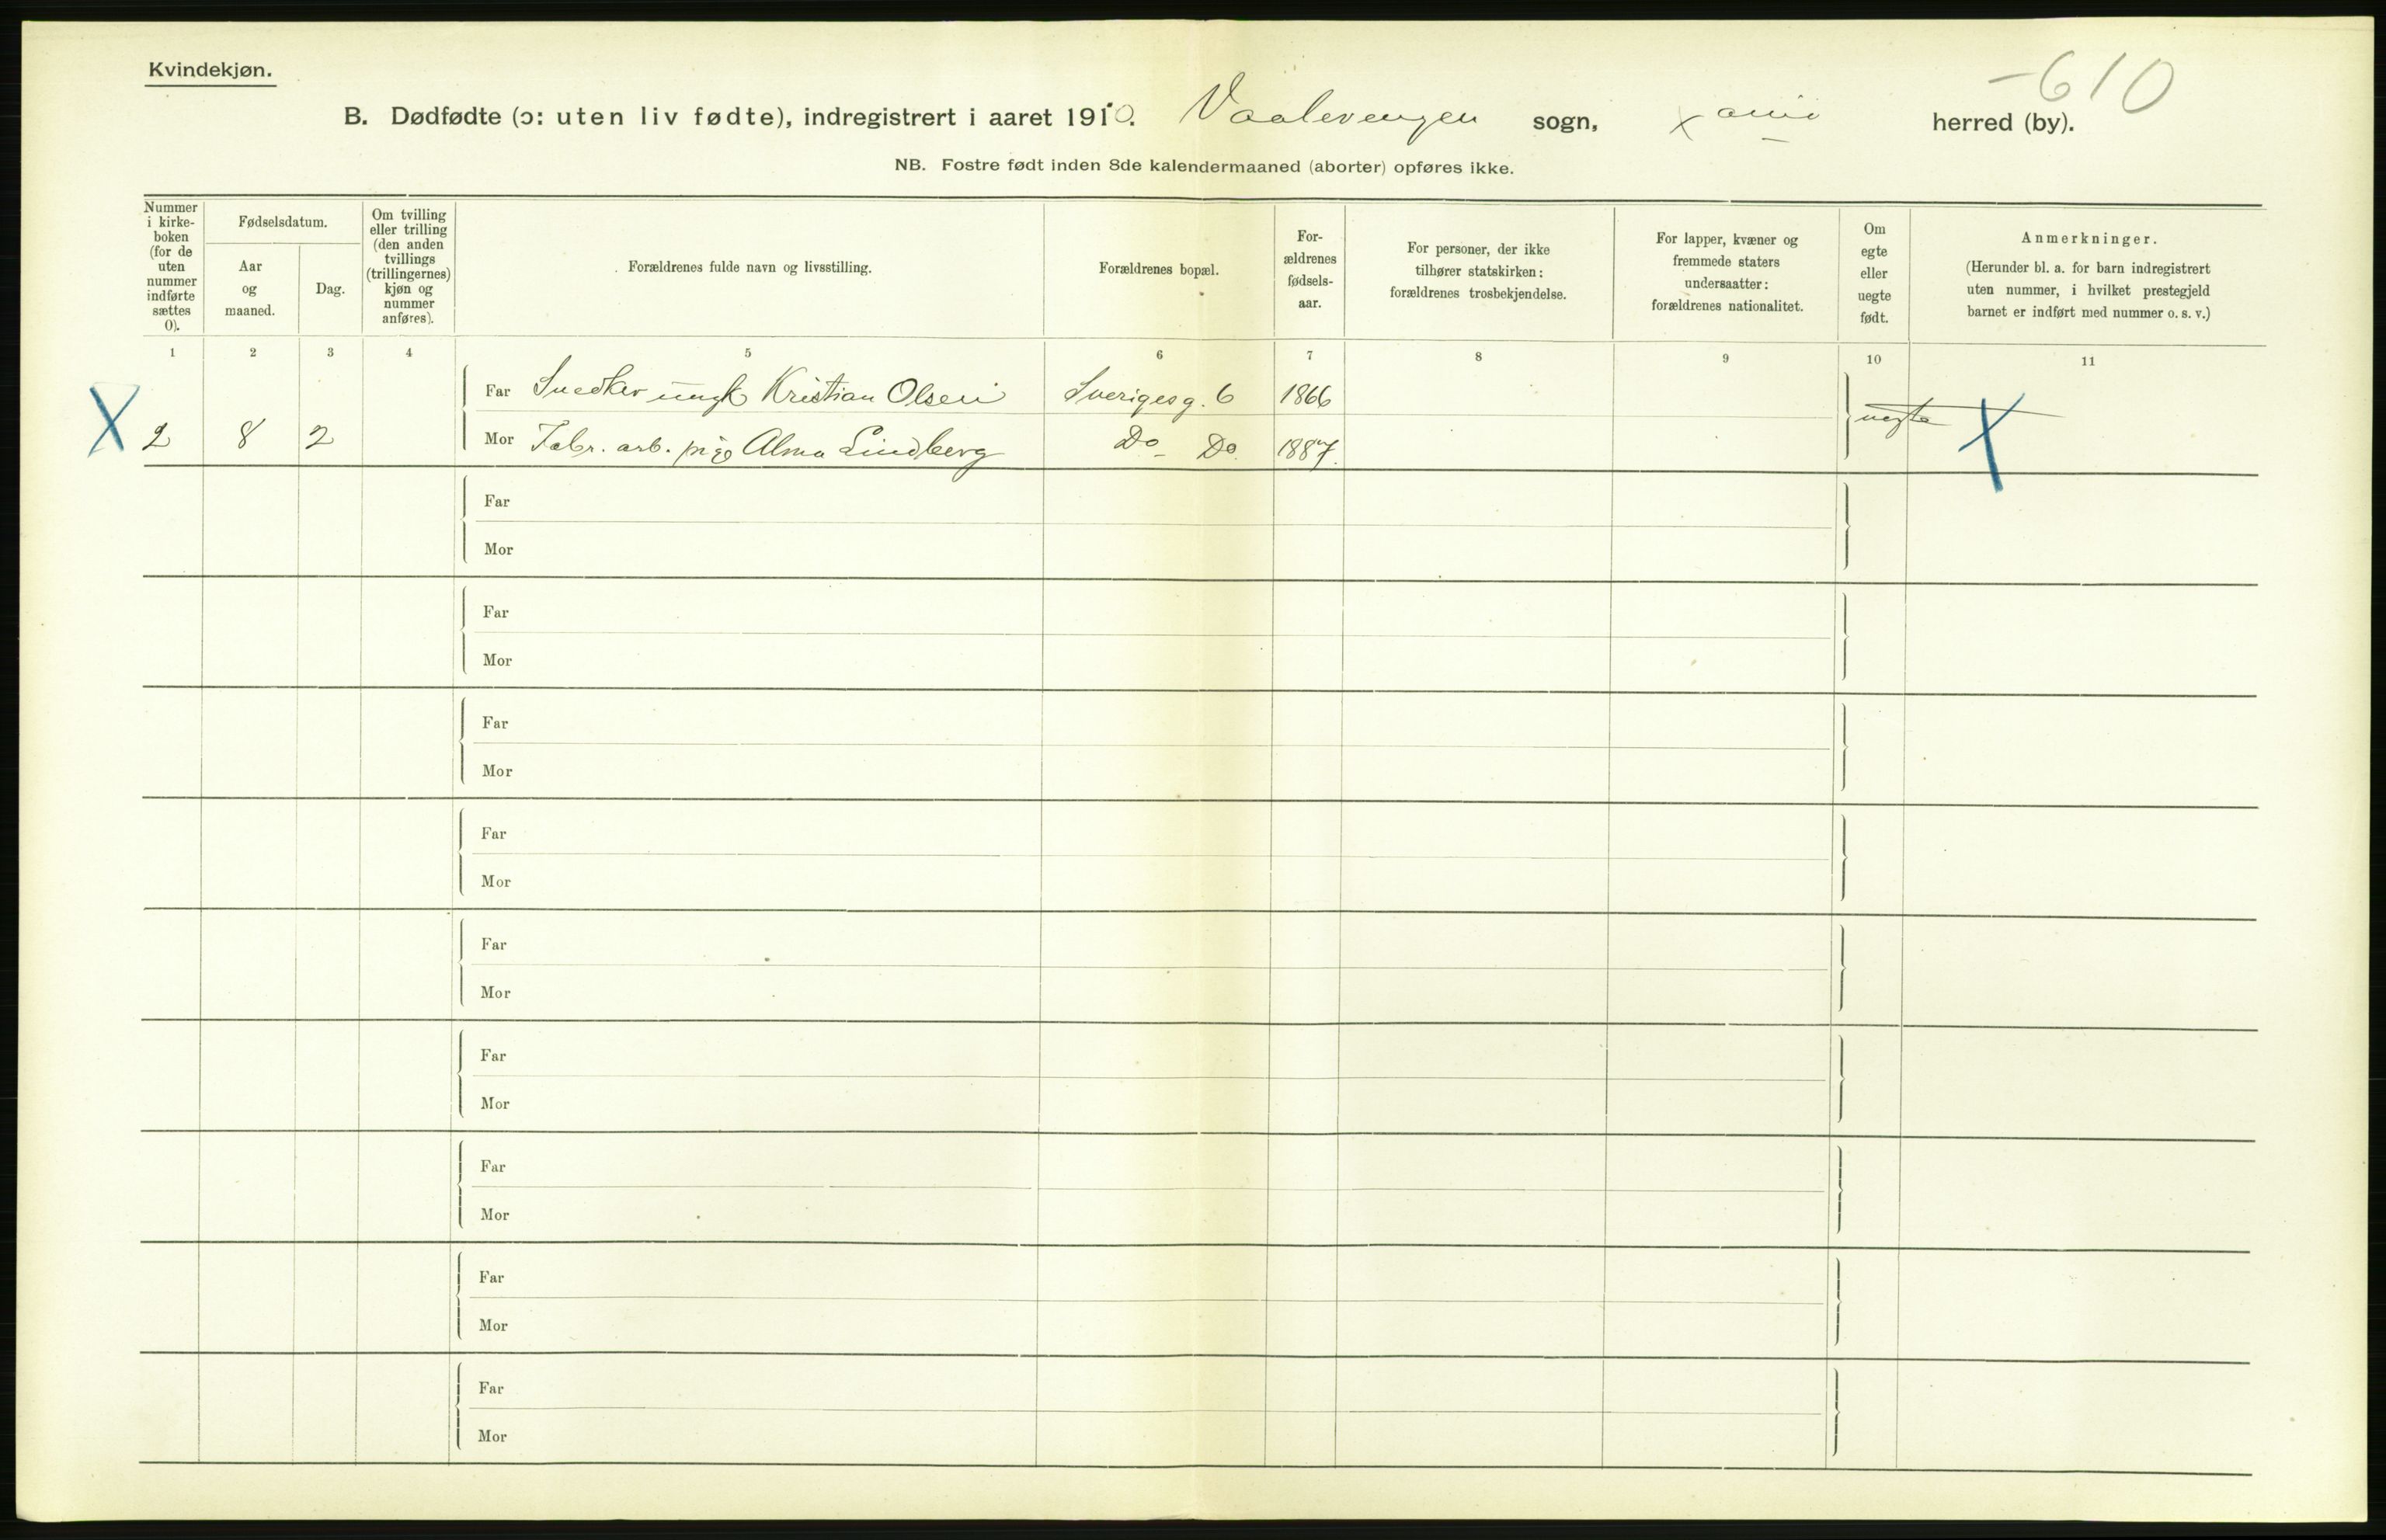 Kvindekjøn.
-610
B. Dødfødte (ɔ: uten liv fødte), indregistrert i aaret 1910. Vaalerengen sogn, Xania herred (by).
NB. Fostre født inden 8de kalendermaaned (aborter) opføres ikke.
Nummer i kirke-
boken
(for de
uten
nummer
indførte
sættes
0).
Fødselsdatum.
Aar
og
maaned.
Dag.
Om tvilling
eller trilling
(den anden
tvillings
(trillingernes)
kjøn og
nummer
anføres).
Forældrenes fulde navn og livsstilling.
Forældrenes bopæl.
For-
ældrenes
fødsels-
aar.
For personer, der ikke
tilhører statskirken:
forældrenes trosbekjendelse.
For lapper, kvæner og
fremmede staters
undersaatter:
forældrenes nationalitet.
Om
egte
eller
uegte
født.
Anmerkninger.
(Herunder bl. a. for barn indregistrert
uten nummer, i hvilket prestegjeld
barnet er indført med nummer o. s. v.)
1 2 3 4 5 6 7 8 9 10 11
Far Snedker ungk Kristian Olsen Sverigesg. 6 1866
X 2 8 2 Mor Fabr. arb. pige Alma Lindberg Do Do 1887. uegte X
Far
Mor
Far
Mor
Far
Mor
Far
Mor
Far
Mor
Far
Mor
Far
Mor
Far
Mor
Far
Mor